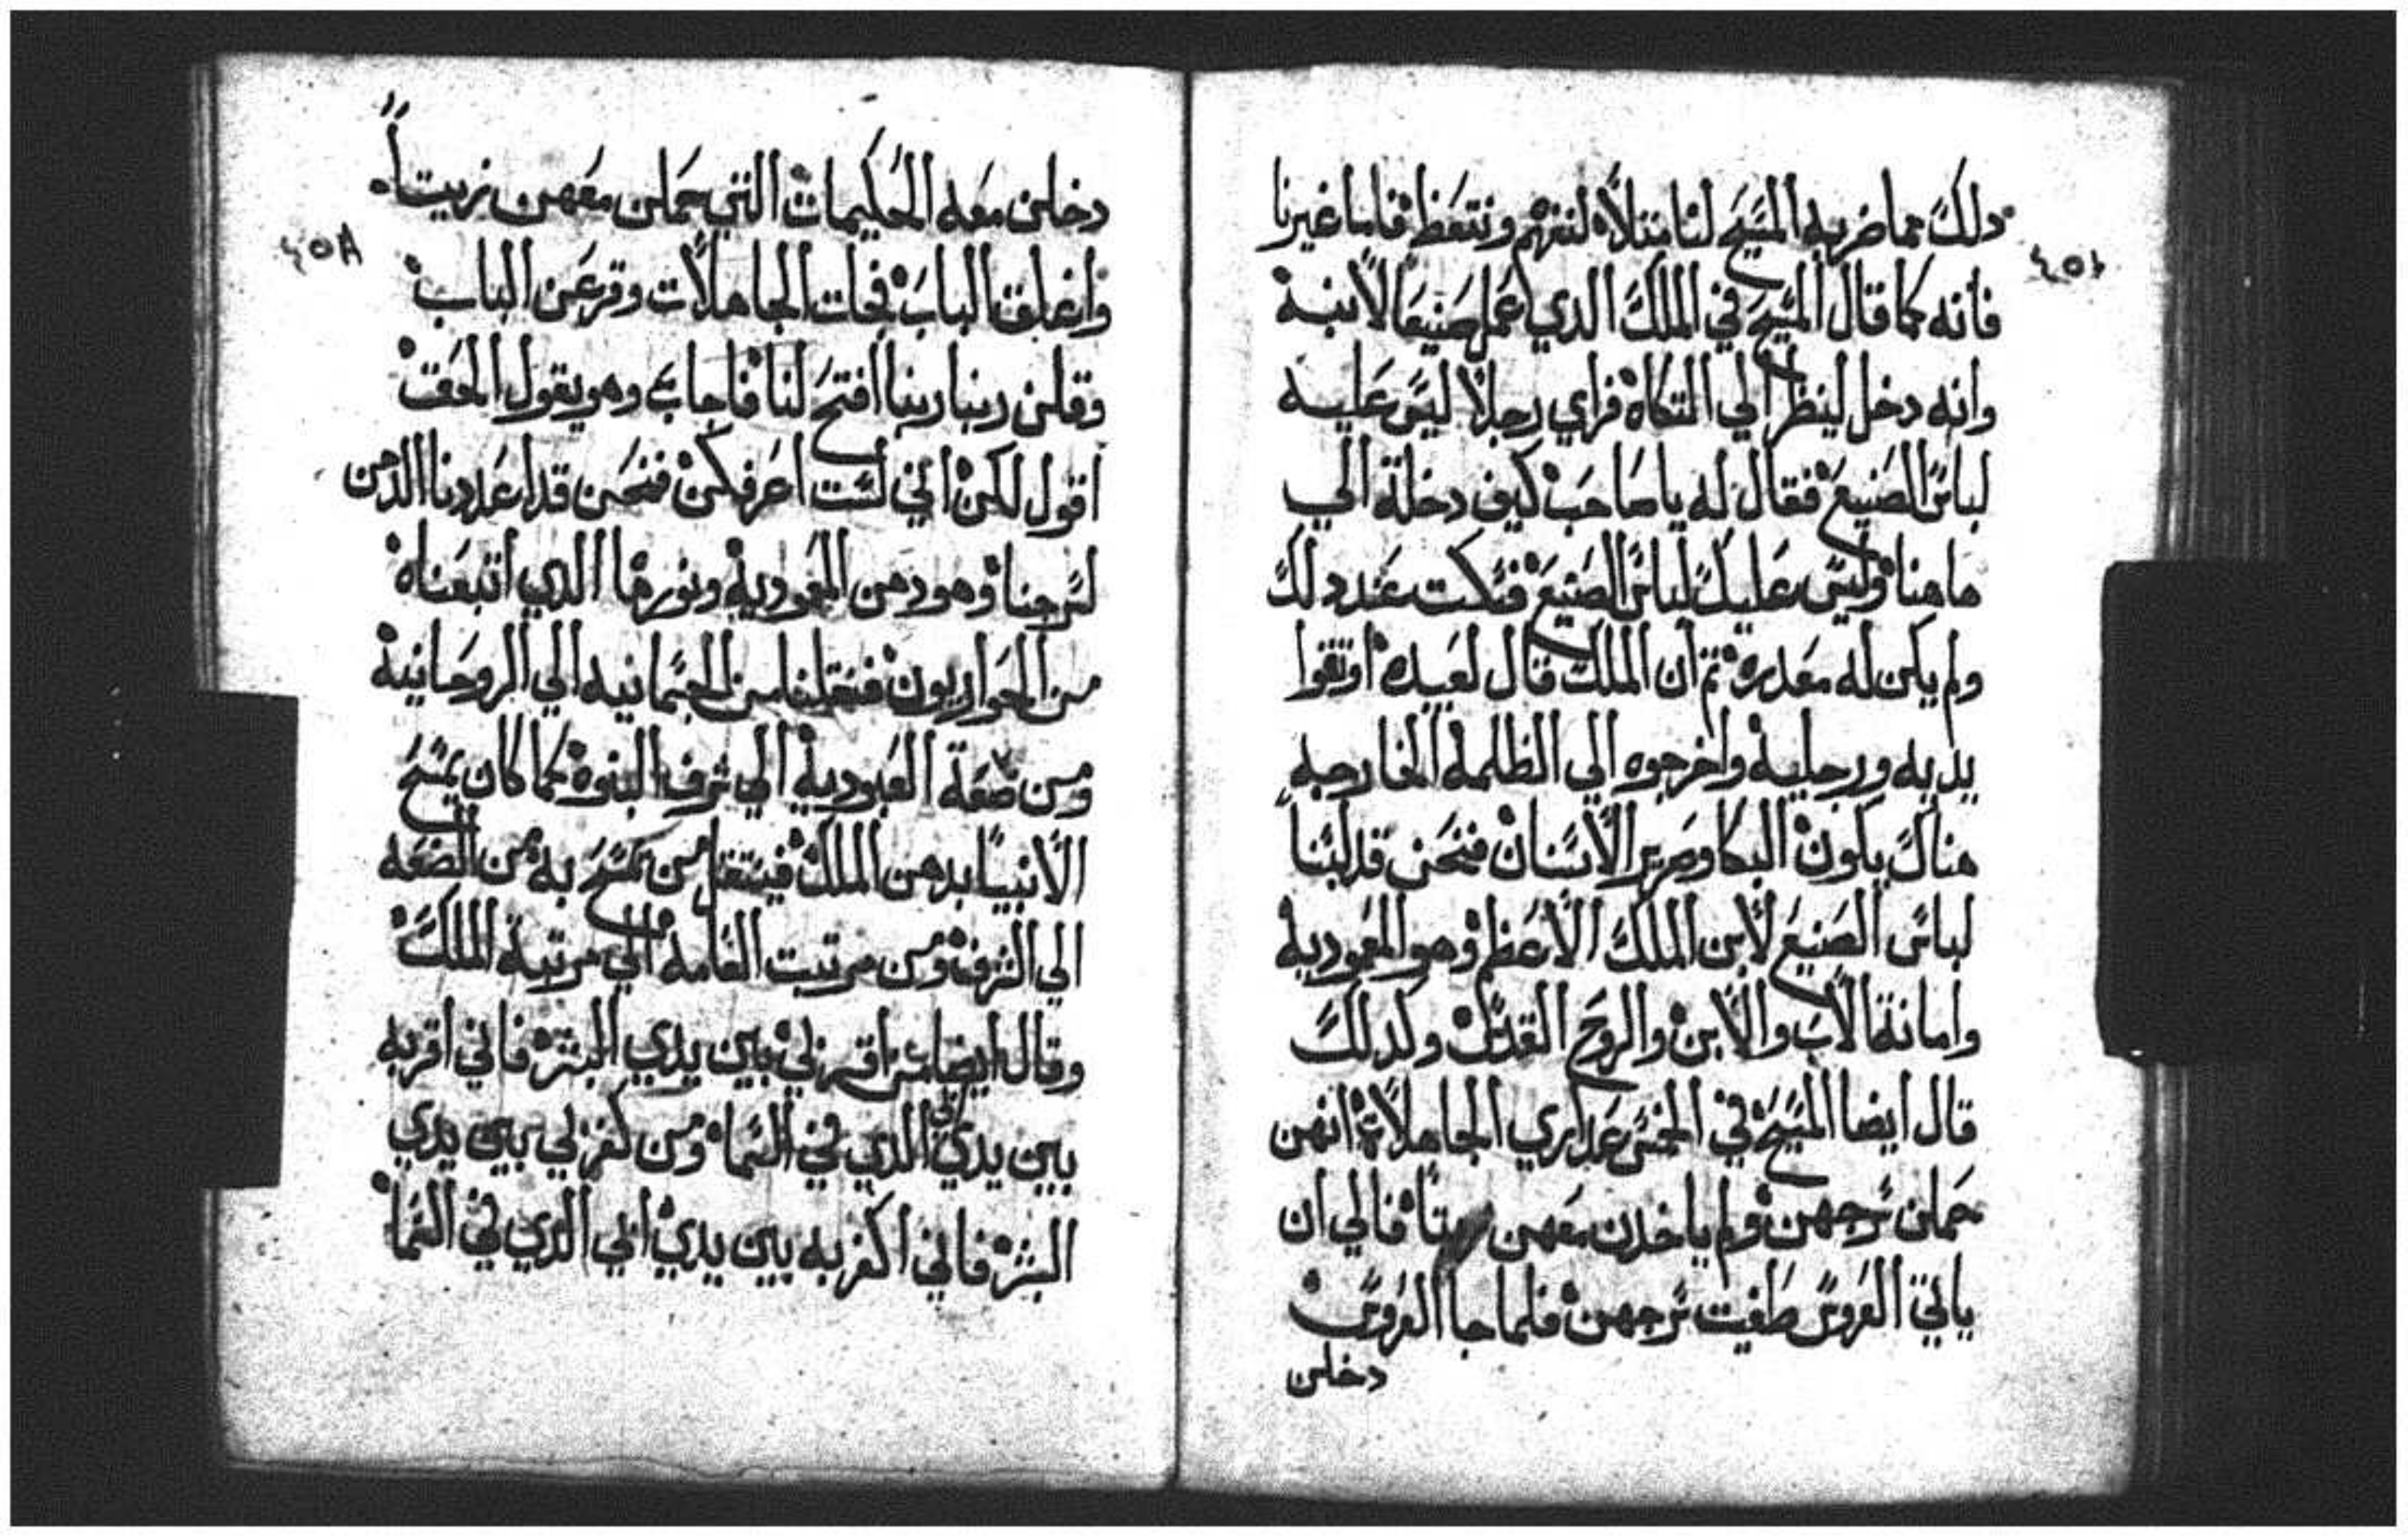 دلك مما ضربه المسيح لنا متلاً لنفهم ونتعظ فاما غيرنا
فانه كما قال المسيح في الملك الدي عمل صنيعاً لابنه
وانه دخل لينظر الي المتكاه فراي رجلاً ليس عليه
لباس الصنيع فقال له يا صاحب كيف دخلة الي
هاهنا وليس عليك لباس الصنيع فسكت عند دلك
ولم يكن له معدره ثم ان الملك قال لعبيده اوتقوا
يديه ورجليه واخرجوه الي الظلمة الخارجه
هناك يكون البكا وصرير الاسنان فنحن قد لبسنا
لباس الصنيع لابن الملك الاعظم وهو المعمودية
وامانة الاب والابن والروح القدس وكدلك
قال ايضا المسيح في الخمس عداري الجاهلاة انهن
حملن سرجهن ولم ياخدن معهن فالي ان
ياتي العروس طفيت سرجهن فلما جا العروس
دخلن
دخلن معه الحكيمات التي حملن معهن زيتاً
واغلق الباب فجات الجاهلات وقرعن الباب
وقلن ربنا ربنا افتح لنا فاجاب وهو يقول الحق
اقول لكن اني لست اعرفكن فنحن قد اعددنا الدهن
لسرجنا وهو دهن المعمودية ونورها الدي اتبعناه
من الحواريون فنقلنا من الجسمانيه الي الروحانية
ومن ضعة العبودية الي شرف البنوه كما كان يمسح
الانبيا بدهن الملك فينتقل من يمسح به من الضعه
الي الشرف ومن مرتبت العامة الي مرتبة الملك
وقال ايضا من اقر لي بين يدي البشر فاني اقر به
بين يدي ابي الدي في السما ومن كفر بي بين يدي
البشر فاني اكفر به بين يدي ابي الدي في السما
٤٥٨